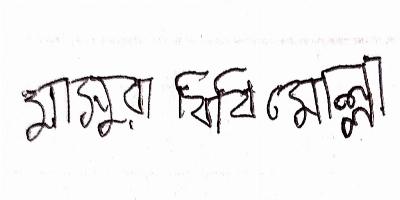 মাসুরা বিবি মোল্লা